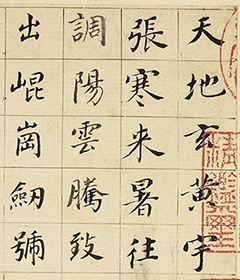 天地玄黃宇
張寒来暑往
調陽雲騰致
出崐崗劔號